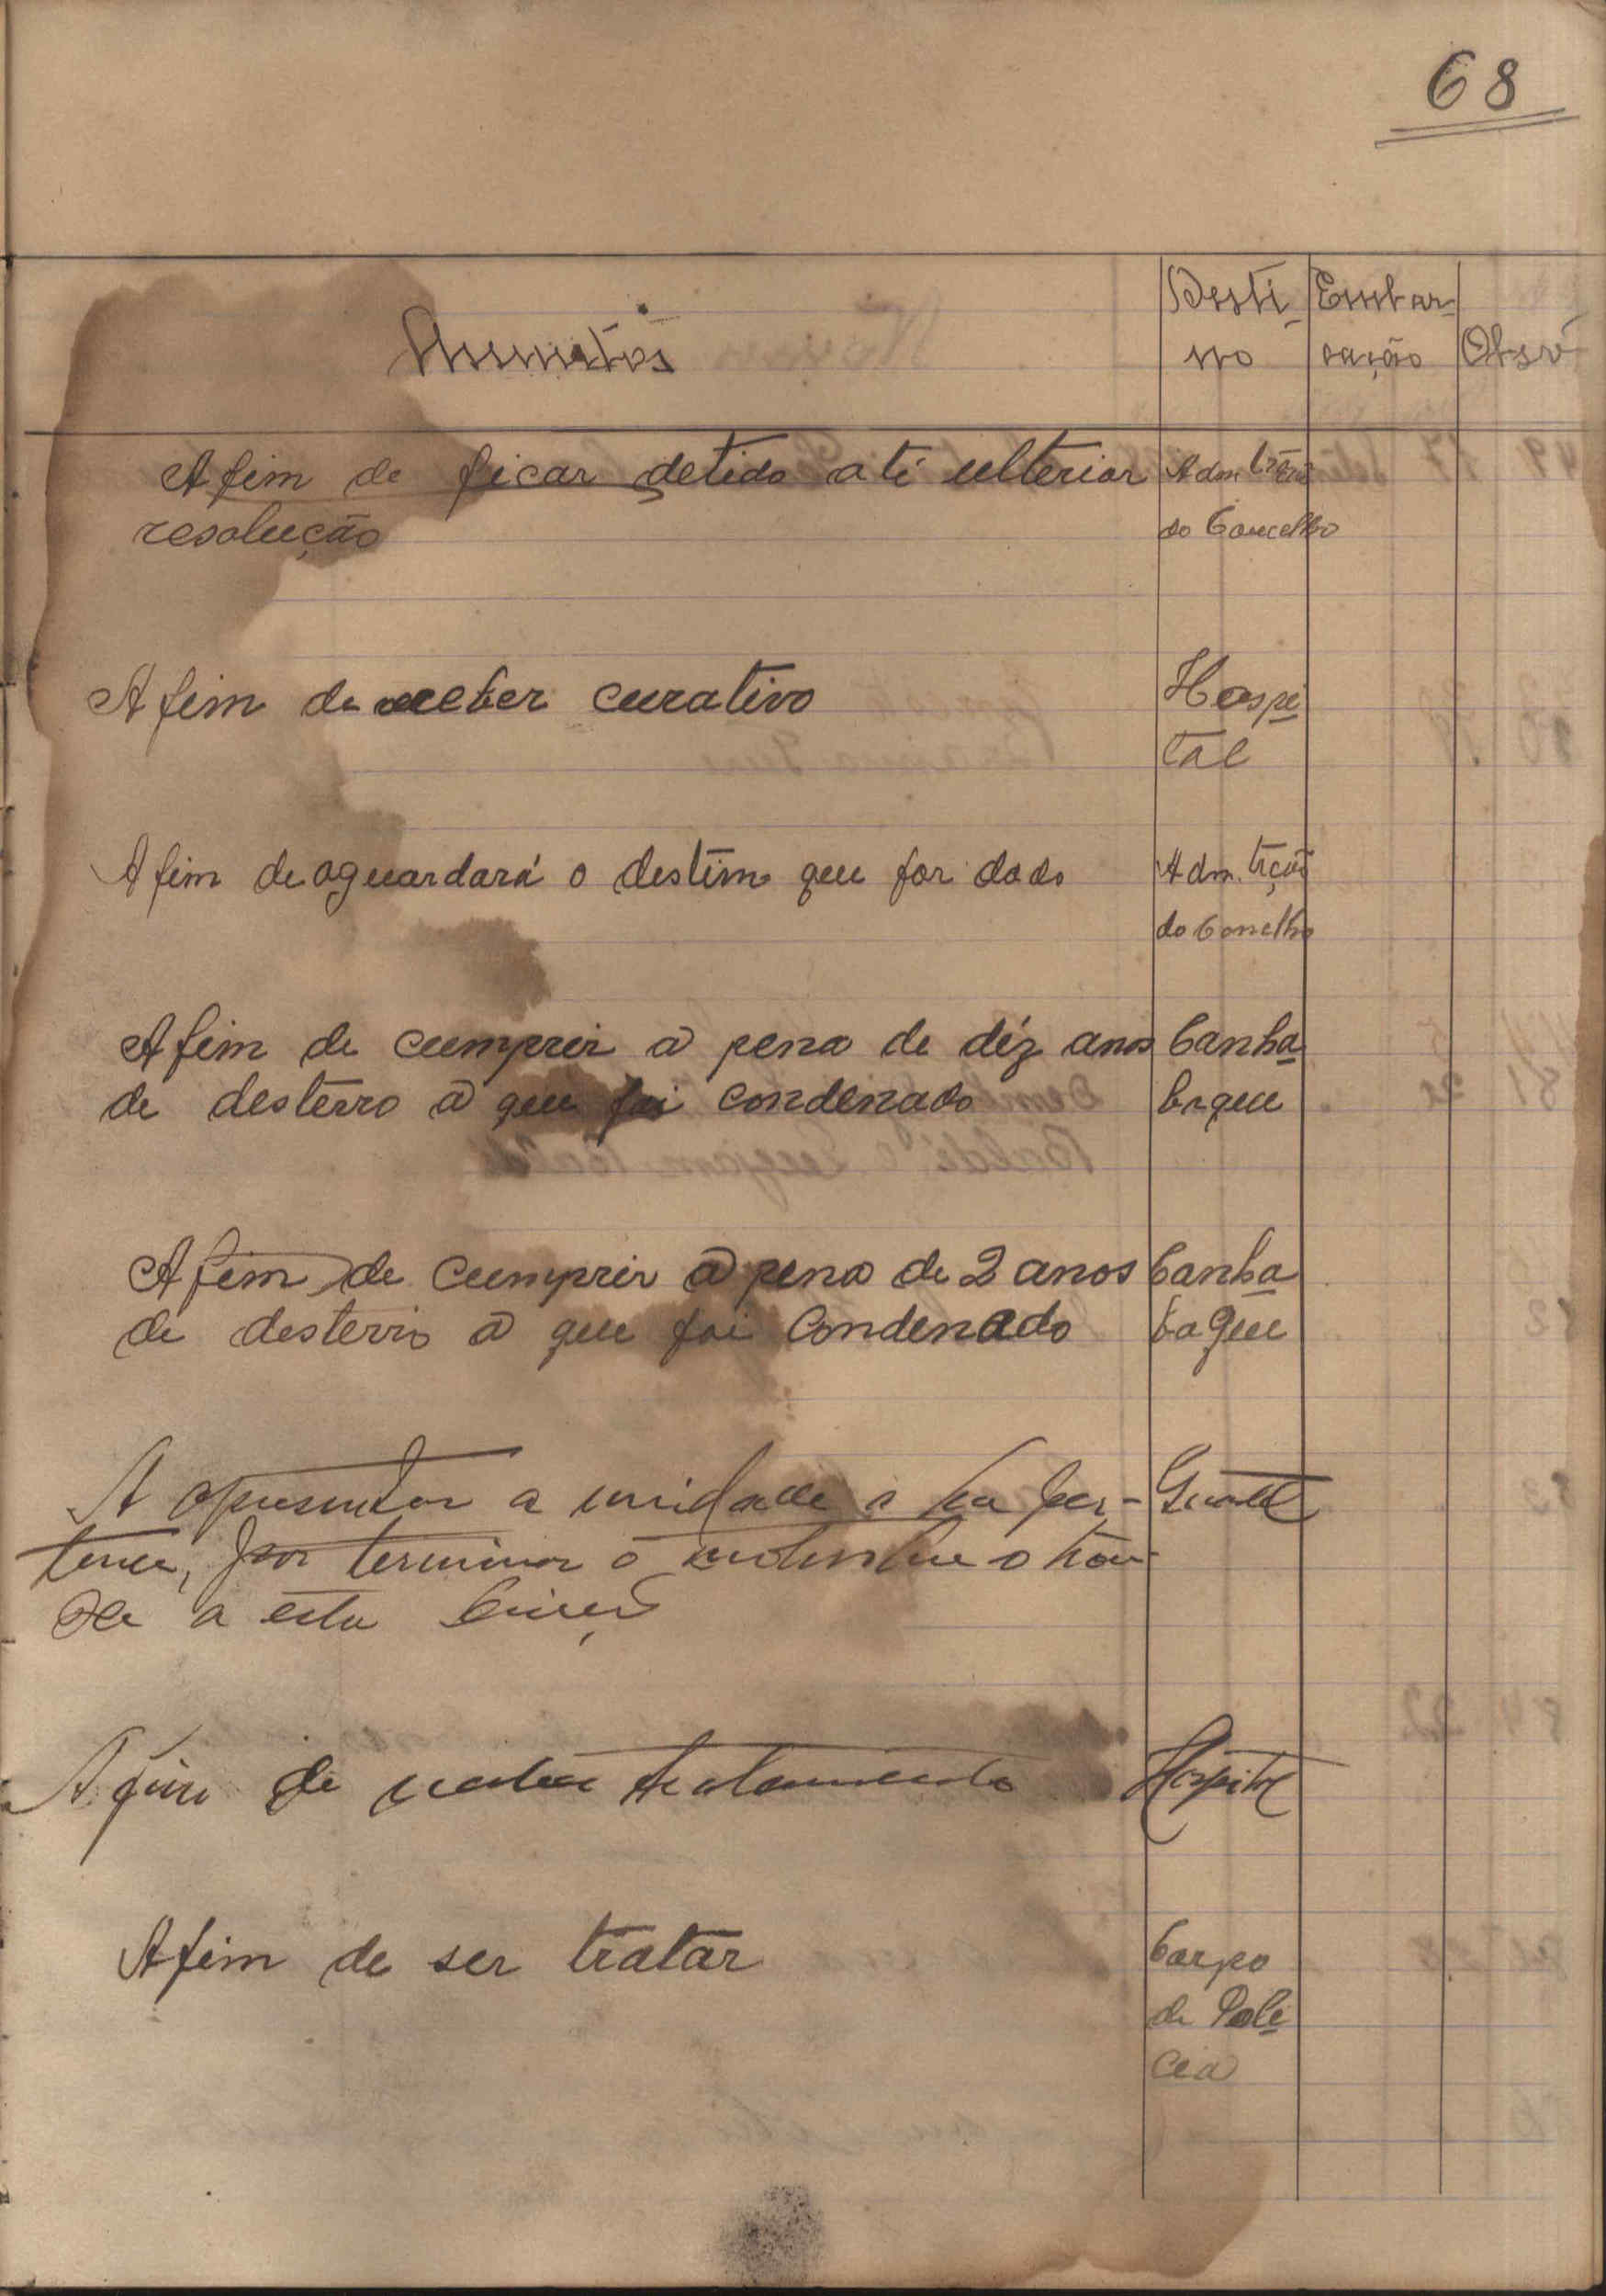 68
Desti- Embar-
Assuntos
no cação Obsrv
Afim de ficar detido até ulterior Adm.tração
resolução do Concelho
Afim de receber curativo Hospi
tal
Afim de aguardará o destino que for dado Adm.tração
do Conelho
Afim de cumprir a pena de déz anos Canha
de desterro a que foi condenado baque
Afim de cumprir a pena de 2 anos Canha
de desterro a que foi Condenado baque
A apresentar a unidade a per-
tence, por terminar o
a esta
Afim de receber tratamento Hospital
Afim de ser tratar Corpo
de Poli
cia